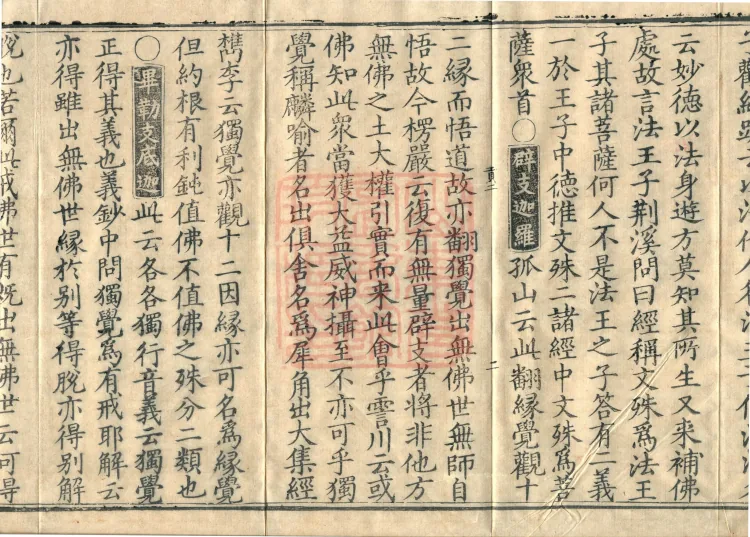 云妙德以法身遊方莫知其所生又來補佛
處故言法王子荆溪問曰經稱文殊爲法王
子其諸菩薩何人不是法王之子荅有二義
一於王子中德推文殊二諸經中文殊爲菩
薩衆首〇辟支迦羅孤山云此翻緣覺觀十
二
二緣而悟道故亦翻獨覺出無佛世無師自
悟故今楞嚴云復有無量辟支者將非他方
無佛之土大權引實而來此會乎霅川云或
佛知此衆當獲大益威神攝至不亦可乎獨
覺稱麟喻者名出俱舍名爲犀角出大集經
檇李云獨覺亦觀十二因緣亦可名爲緣覺
但約根有利鈍值佛不值佛之殊分二類也
〇畢勒支底迦此云各各獨行音義云獨覺
正得其義也義鈔中問獨覺爲有戒耶解云
亦得雖出無佛世緣於別等得脫亦得別解
脫也若爾此戒佛世有旣出無佛世云可得